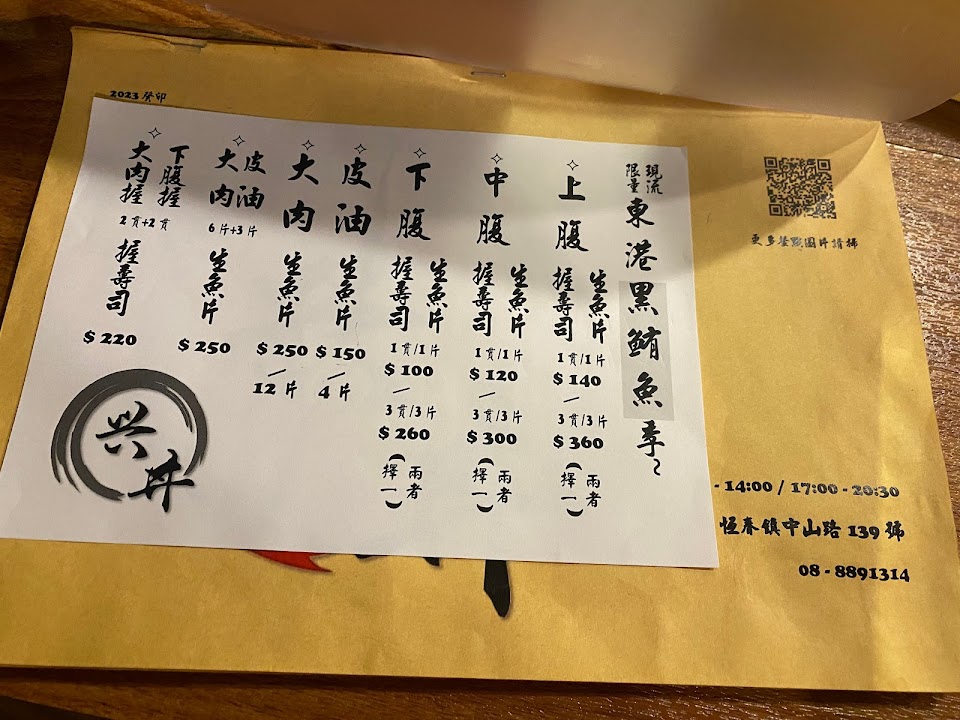 2023 癸卯
現流
限量
東港黑鮪魚季~
上腹
生魚片
握壽司
1貫/1片
$ 140
/
3貫/3片
$ 360
(兩者
擇一)
中腹
生魚片
握壽司
1貫/1片
$ 120
/
3貫/3片
$ 300
(兩者
擇一)
下腹
生魚片
握壽司
1貫/1片
$ 100
/
3貫/3片
$ 260
(兩者
擇一)
皮油
生魚片
$ 150
/
4片
大肉
生魚片
$ 250
/
12片
皮油
大肉
6片+3片
生魚片
$ 250
下腹握
大肉握
2貫+2貫
握壽司
$ 220
兴丼
更多餐點圖片請掃
- 14:00 / 17:00 - 20:30
恆春鎮中山路 139 號
08 - 8891314